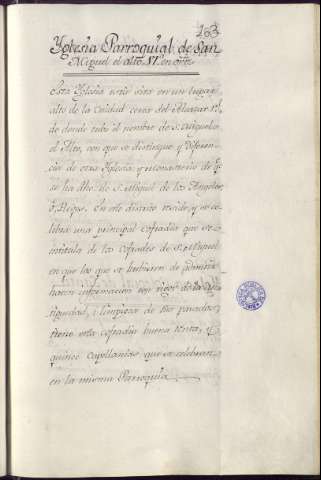 203
Yglesia Parroquial de San
Miguel el alto VI. en orn.
Esta Yglesia está sita en un lugar
alto de la Ciudad cerca del Alcazar Rl.
de donde tubo el nombre de Sn. Miguel
el Alto, con que se distingue, y diferen-
cia de otra Yglesia, y
se ha dho. de Sn. Miguel de los Angeles
ó Reyes. En este distrito reside, y se ce-
lebra una principal Cofradia que se
intitula de los Cofrades de Sn. Miguel
en que los que se hubieren de admitir
hacen informacion con rigor de la An-
tiguedad, i limpieza de sus pasados,
tiene esta cofradia buena renta, y
quince Capellanias que se celebran
en la misma Parroquia.